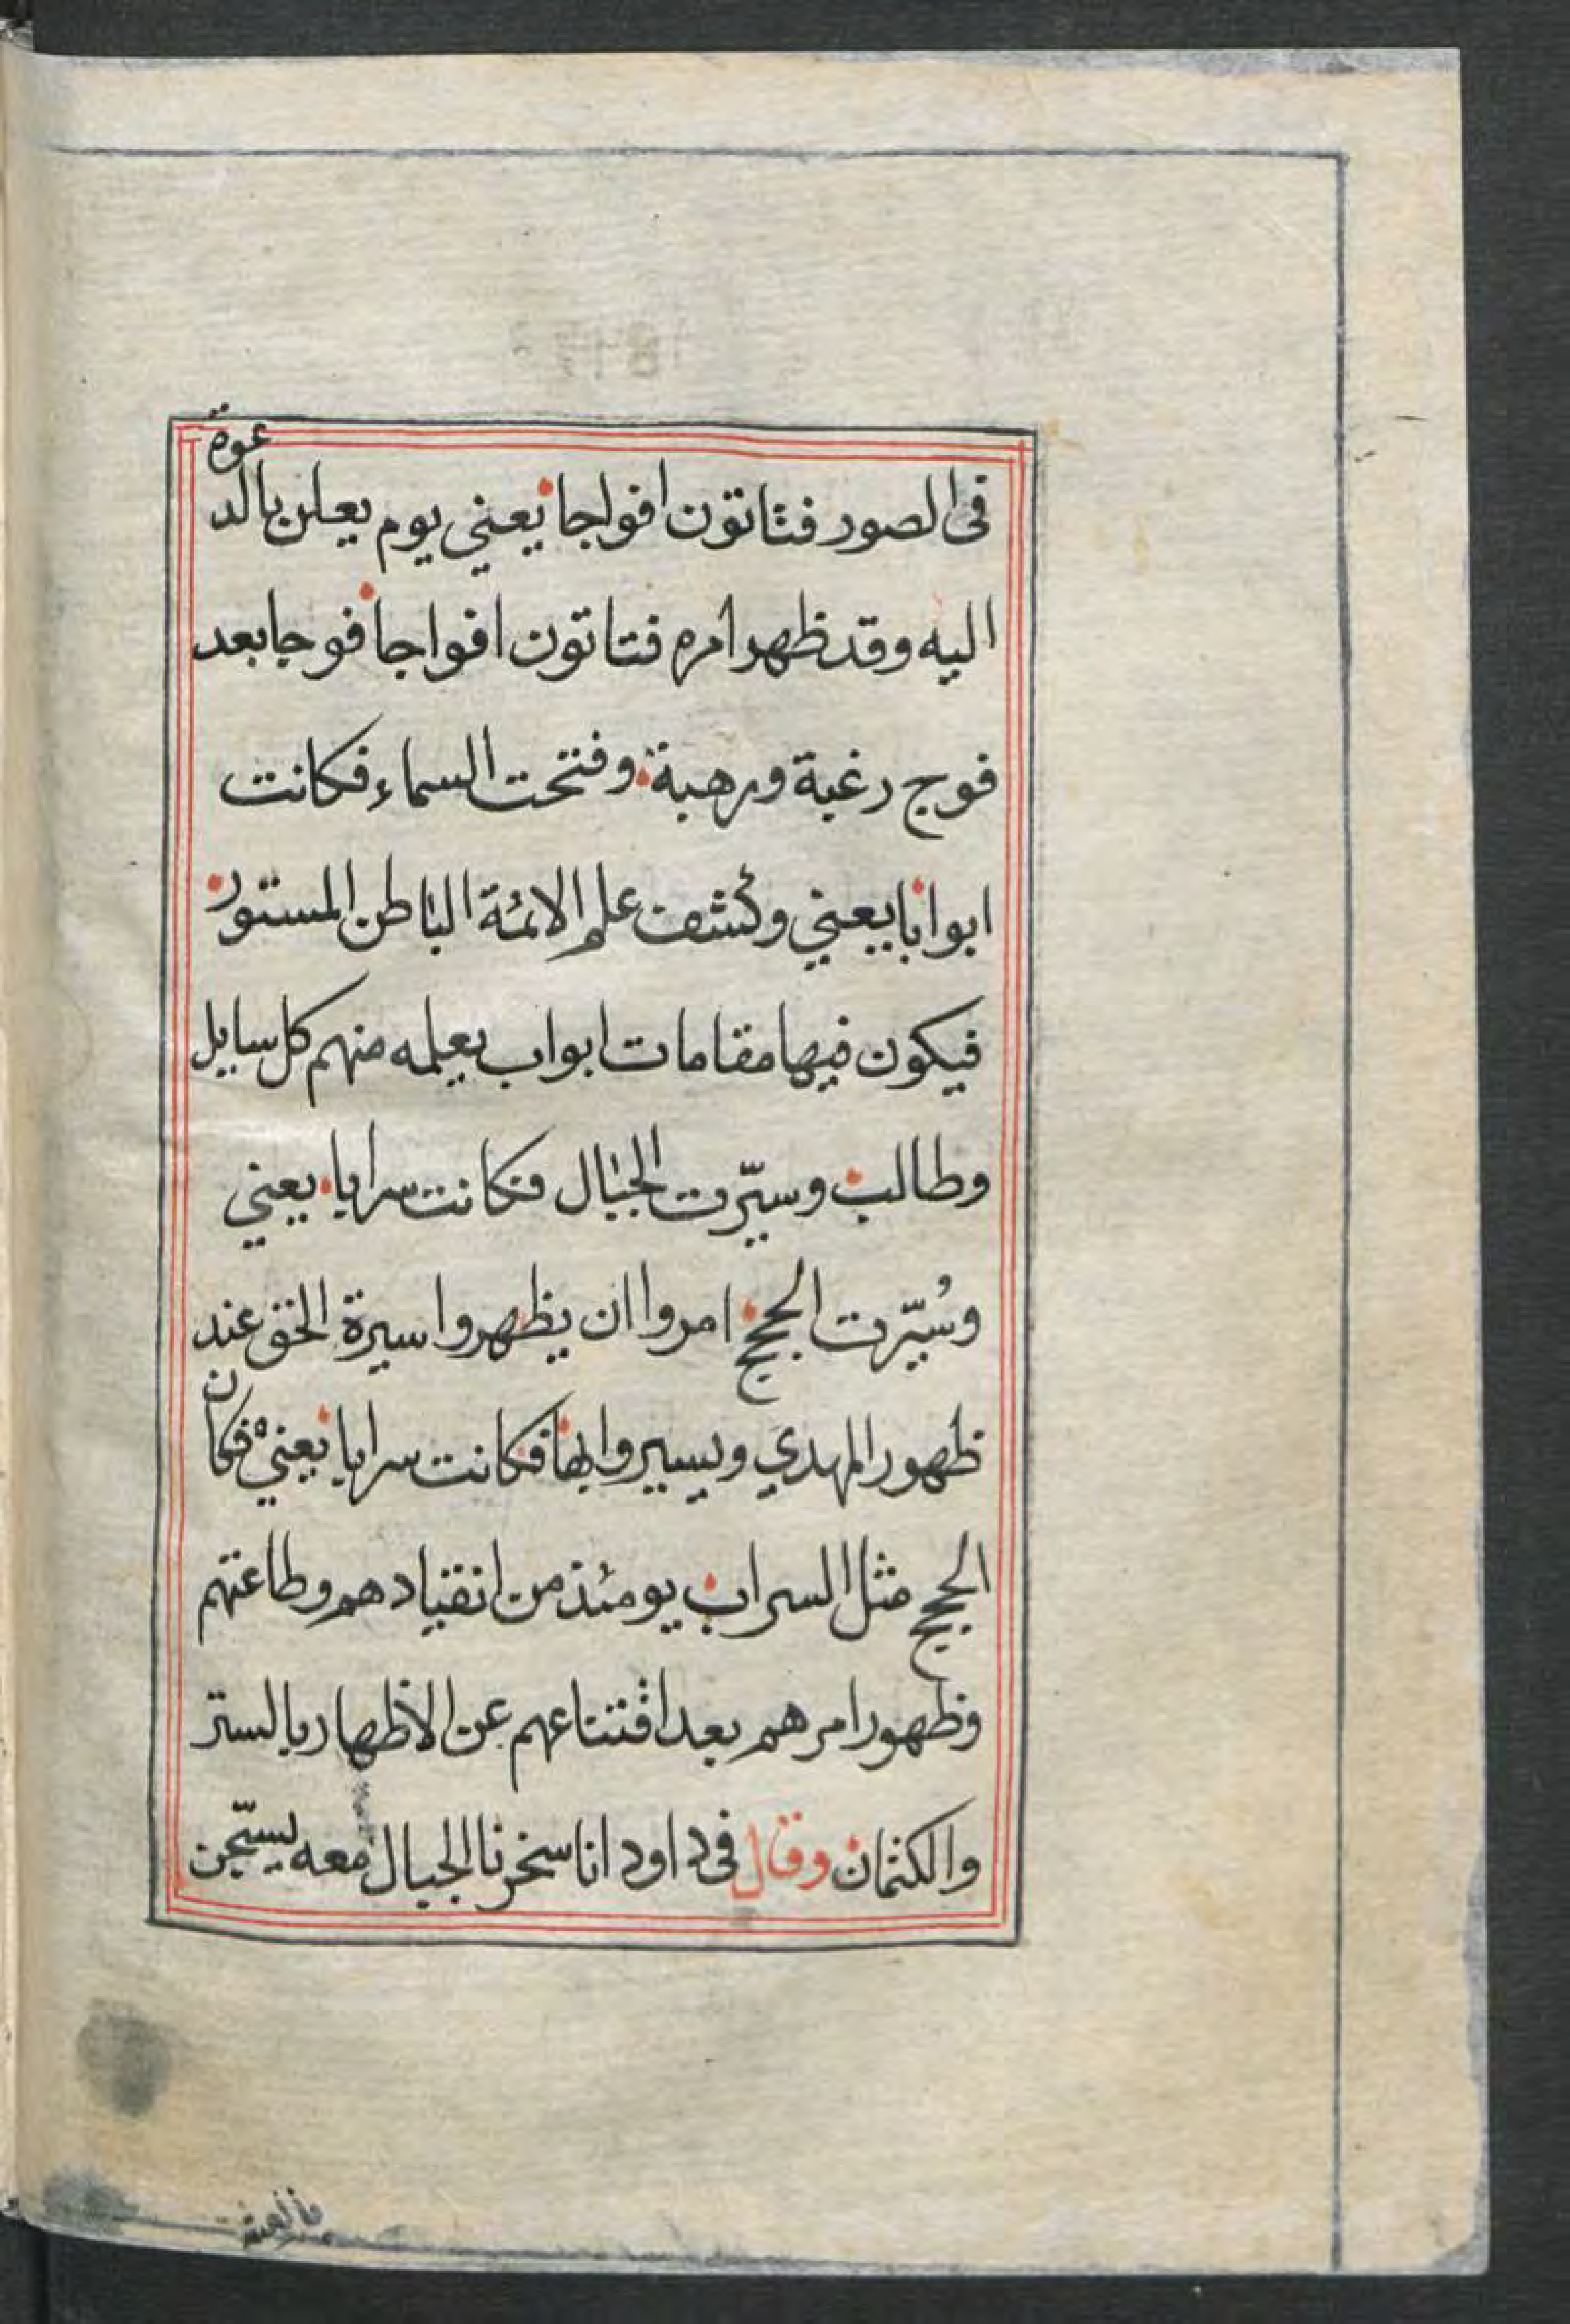 في الصور فتاتون افواجا يعني يوم يعلن بالدعوة
اليه وقد ظهر امره فتاتون افواجا فوجا بعد
فوج رغبة ورهبة وفتحت السماء فكانت
ابوابا يعني وكشف علم الائمة الباطن المستور
فيكون فيها مقامات ابواب يعلمه منهم كل سايل
وطالب وسيّرت الجبال فكانت سرابا يعني
وسُيّرت الحجج امروا ان يظهروا سيرة الحق عند
ظهور المهدي ويسيروا بها فكانت سرابا يعني فكان
الحجج مثل السراب يومئذ من انقيادهم وطاعتهم
وظهور امرهم بعد امتناعهم عن الاظهار بالستر
والكتمان وقال في داود انا سخرنا الجبال معه يسبّحن